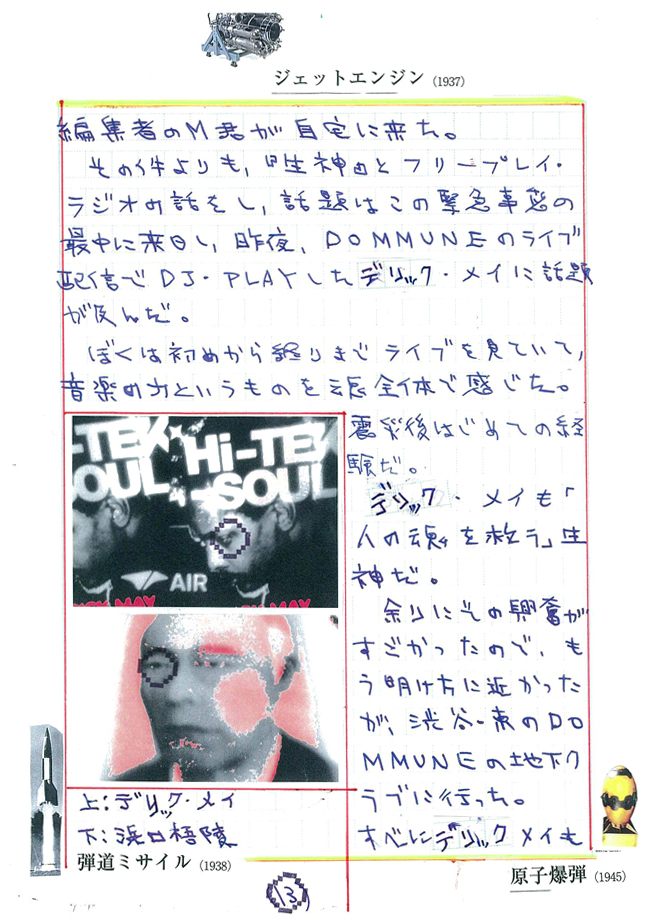 ジェットエンジン (1937)
編集者のM君が自宅に来た。
その件よりも、『生神』とフリープレイ・
ラジオの話をし、話題はこの緊急事態の
最中に来日し、昨夜、DOMMUNEのライブ
配信でDJ・PLAYしたデリック・メイに話題
が及んだ。
ぼくは初めから終りまでライブを見ていて、
音楽の力というものを魂全体で感じた。
震災後はじめての経
験だ。
デリック・メイも「
人の魂を救う」生
神だ。
余りにその興奮が
すごかったので、も
う明け方に近かった
が、渋谷・東のDO
MMUNEの地下ク
ラブに行った。
すべにデリックメイも
-TEK Hi-TEK
OUL SOUL
AIR
MAY
上：デリック・メイ
下：浜口梧陵
弾道ミサイル (1938)
原子爆弾 (1945)
13